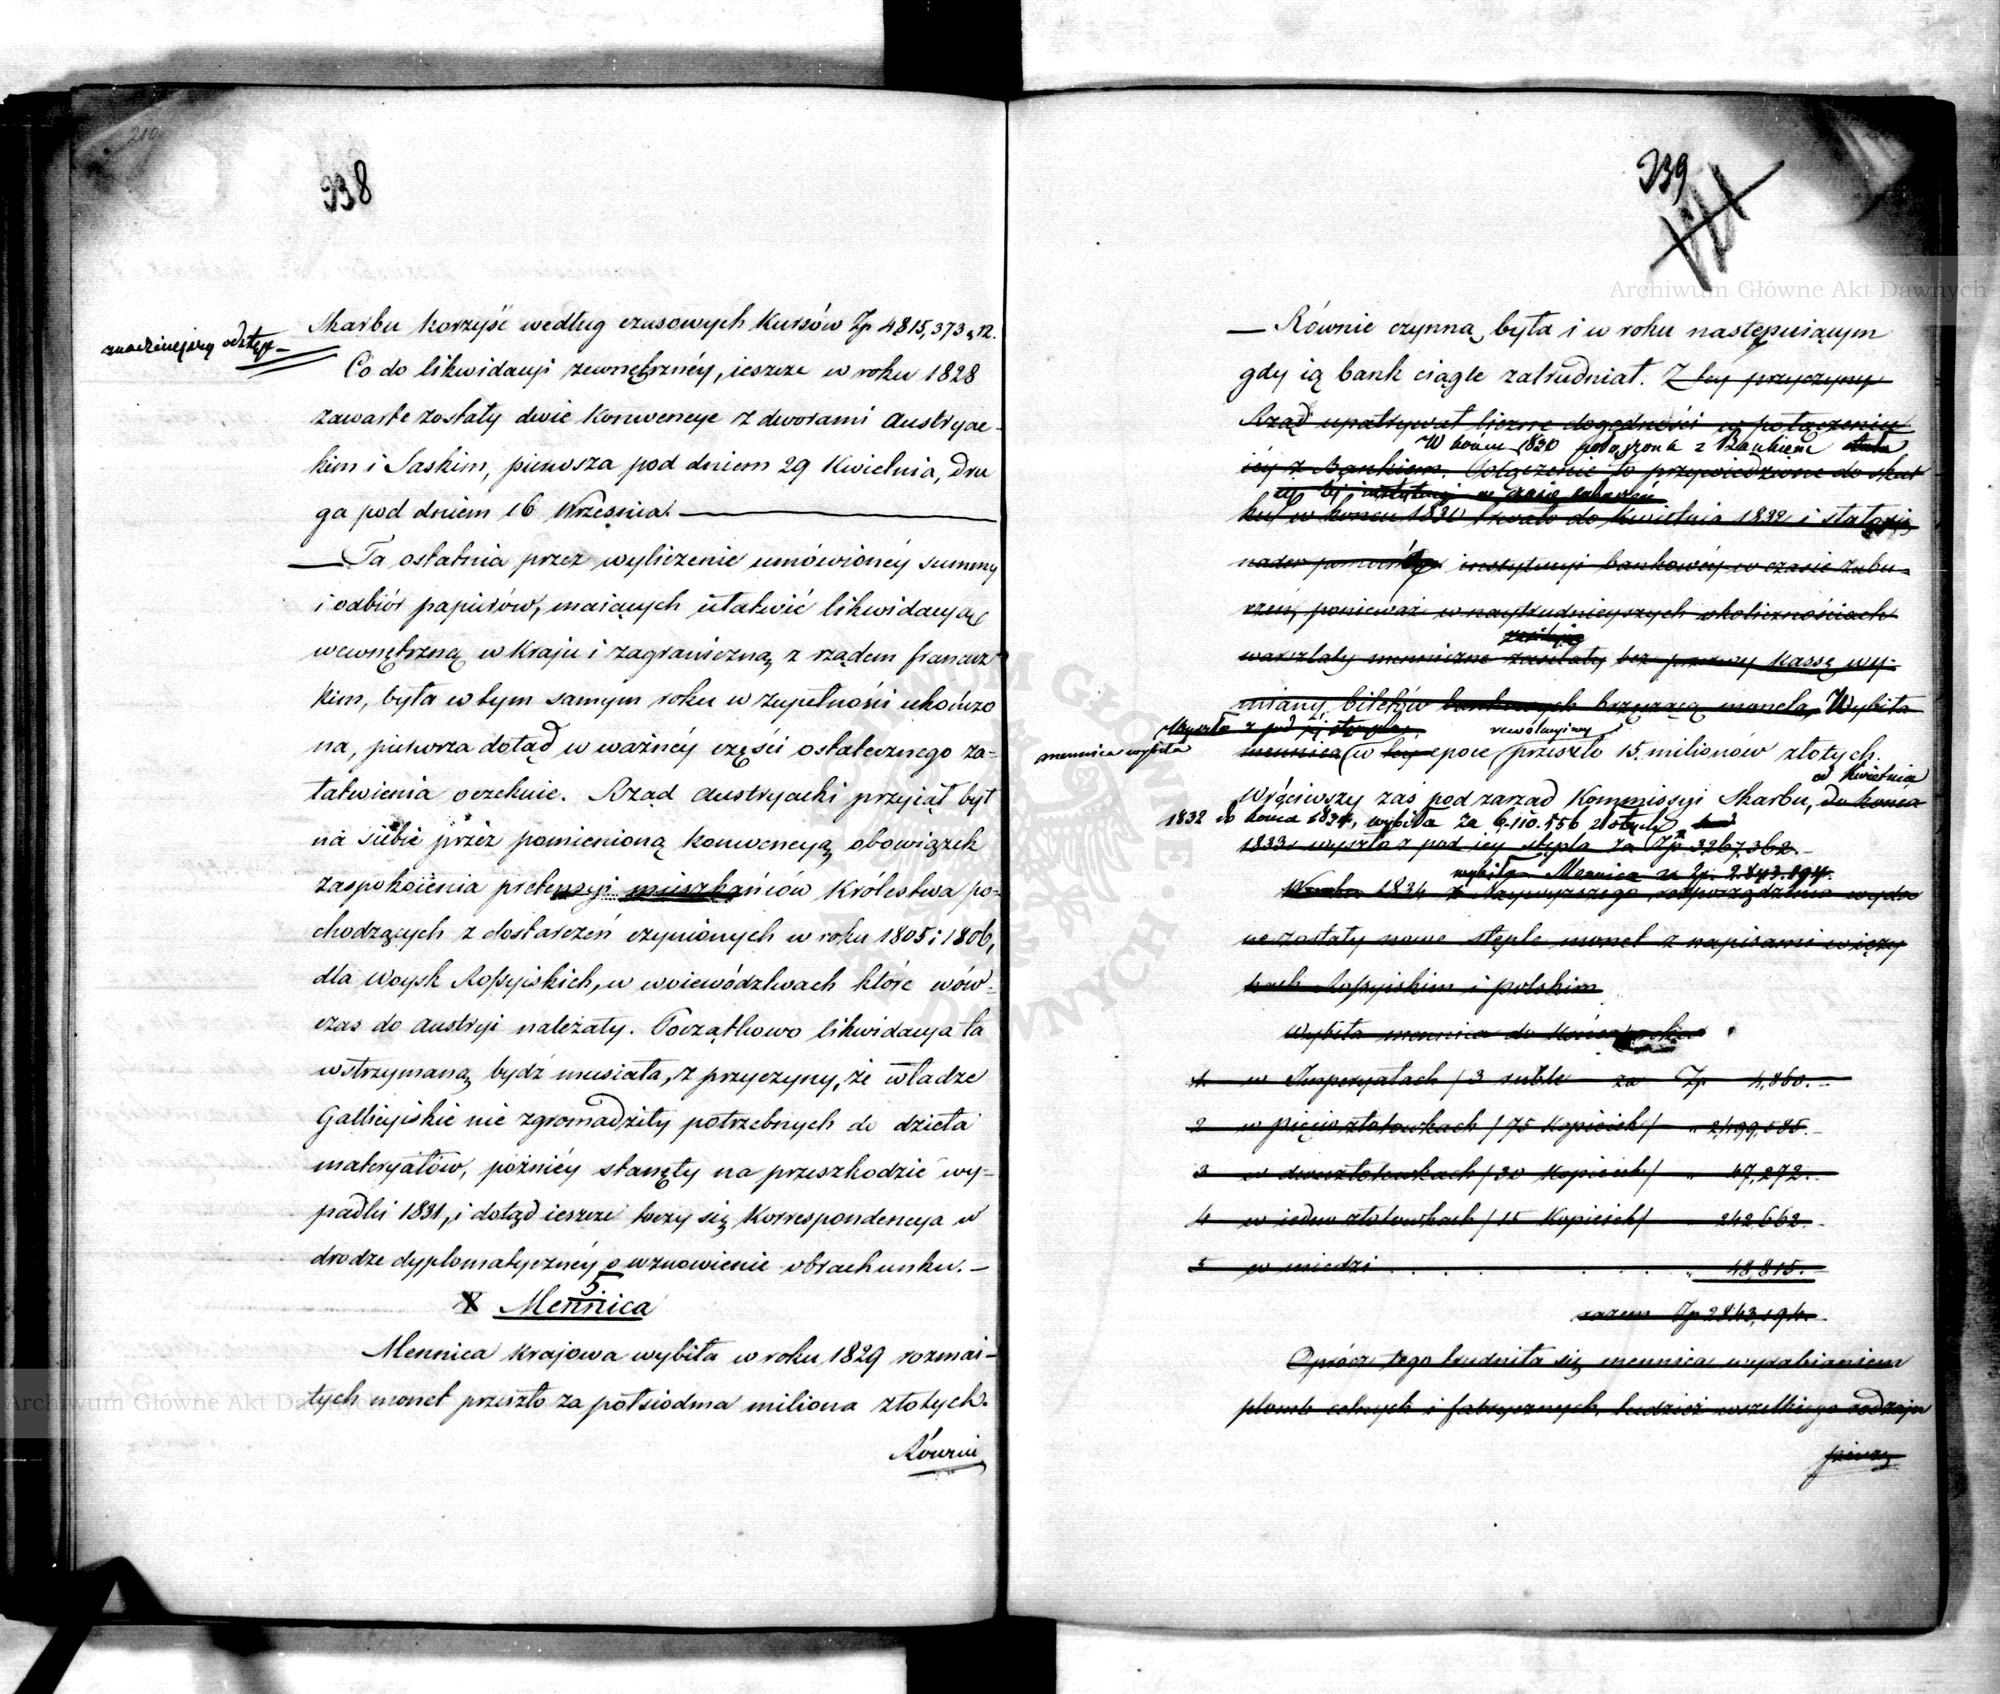 338
Skarbu korzyść według czasowych kursów Zp 4815,373 g 12.
znaczniejszy odstęp
Co do likwidacyi zewnętrznéy, ieszcze w roku 1828
zawarte zostały dwie Konwencye z dworami Austryac-
kim i Saskim, pierwsza pod dniem 29 Kwietnia, dru
ga pod dniem 16 Września.
— Ta ostatnia przez wyliczenie umówionéy summy
i odbiór papierów, maiących ułatwić likwidacyą
wewnętrzną w Kraju i zagraniczną z rządem francuz
kim, była w tym samym roku w zupełności ukończo
na, pierwsza dotąd w ważnéy części ostatecznego za-
łatwienia oczekuie. Rząd Austryacki przyiął był
na siebie przez pomienioną konwencyą obowiązek
zaspokoienia pretensyi mieszkańców Królestwa po-
chodzących z dostarczeń czynionych w roku 1805 i 1806,
dla Woysk Rossyiskich, w woiewództwach które wów-
czas do Austryi należały. Początkowo likwidacya ta
wstrzymaną bydź musiała, z przyczyny, że władze
Gallicyiskie nie zgromadziły potrzebnych do dzieła
materyałów, poźniéy stanęły na przeszkodzie wy-
padki 1831, i dotąd ieszcze toczy się Korrespondencya w
drodze dyplomatycznéy o wznowienie obrachunku. —
5.
X Mennica
Mennica Krajowa wybiła w roku 1829 rozmai-
tych monet przeszło za półsiodma miliona złotych.
Równi
339
— Równie czynną była i w roku następuiącym
gdy ią bank ciągle zatrudniał. Z tey przyczyny
Rząd upatrywał liczne dogodności w połączeniu
W końcu 1830 połączona z Bankiem
iéy z Bankiem. Połączenie to przywiedzione do skut
téj instytucyi w czasie zaburzeń
ku w końcu 1830 trwało do Kwietnia 1832 i stało się
nader instytucyi bankowéy w czasie zabu-
rzeń, ponieważ w naytrudnieyszych okolicznościach
warsztaty mennicze zasilały bez przerwy Kassę wy-
miany biletów bankowych brzęczącą monetą, Wybiła
rewolucyiny
mennica wybiła
mennica (w tey epoce) przeszło 15. milionów złotych.
od Kwietnia
Wróciwszy zaś pod zarząd Kommissyi Skarbu, do końca
1832 do końca 1834, wybiła za 6.110.556 złotych
1833 wyszło z pod iéy stępla za Zp 3267,362.-
wybiła Mennica za Zp. 2.843.194.
W roku 1834 z Naywyższego rozporządzenia wyda
ne zostały nowe stęple monet z napisami w ięzy
kach Rossyiskim i polskim
Wybiła mennica do Końca roku
1 w Imperyałach / 3 ruble za Zp 4,860.-
2 w pięciozłotowkach / 75 Kopieiek / „ 2,499,585.-
3 w dwuzłotowkach / 30 Kopieiek / „ 47,272.-
4 w iedno złotowkach / 15 Kopieiek / „ 242,662.-
5 w miedzi . . . . . „ 48,815.-
razem Zp 2843,194.-
Oprócz tego trudniła się mennica wyrabianiem
plomb celnych i fabrycznych, tudzież wszelkiego rodzaju
pieczę
Archiwum Główne Akt Dawnych
Archiwum Główne Akt Dawnych
ARCHIWUM GŁÓWNE AKT DAWNYCH